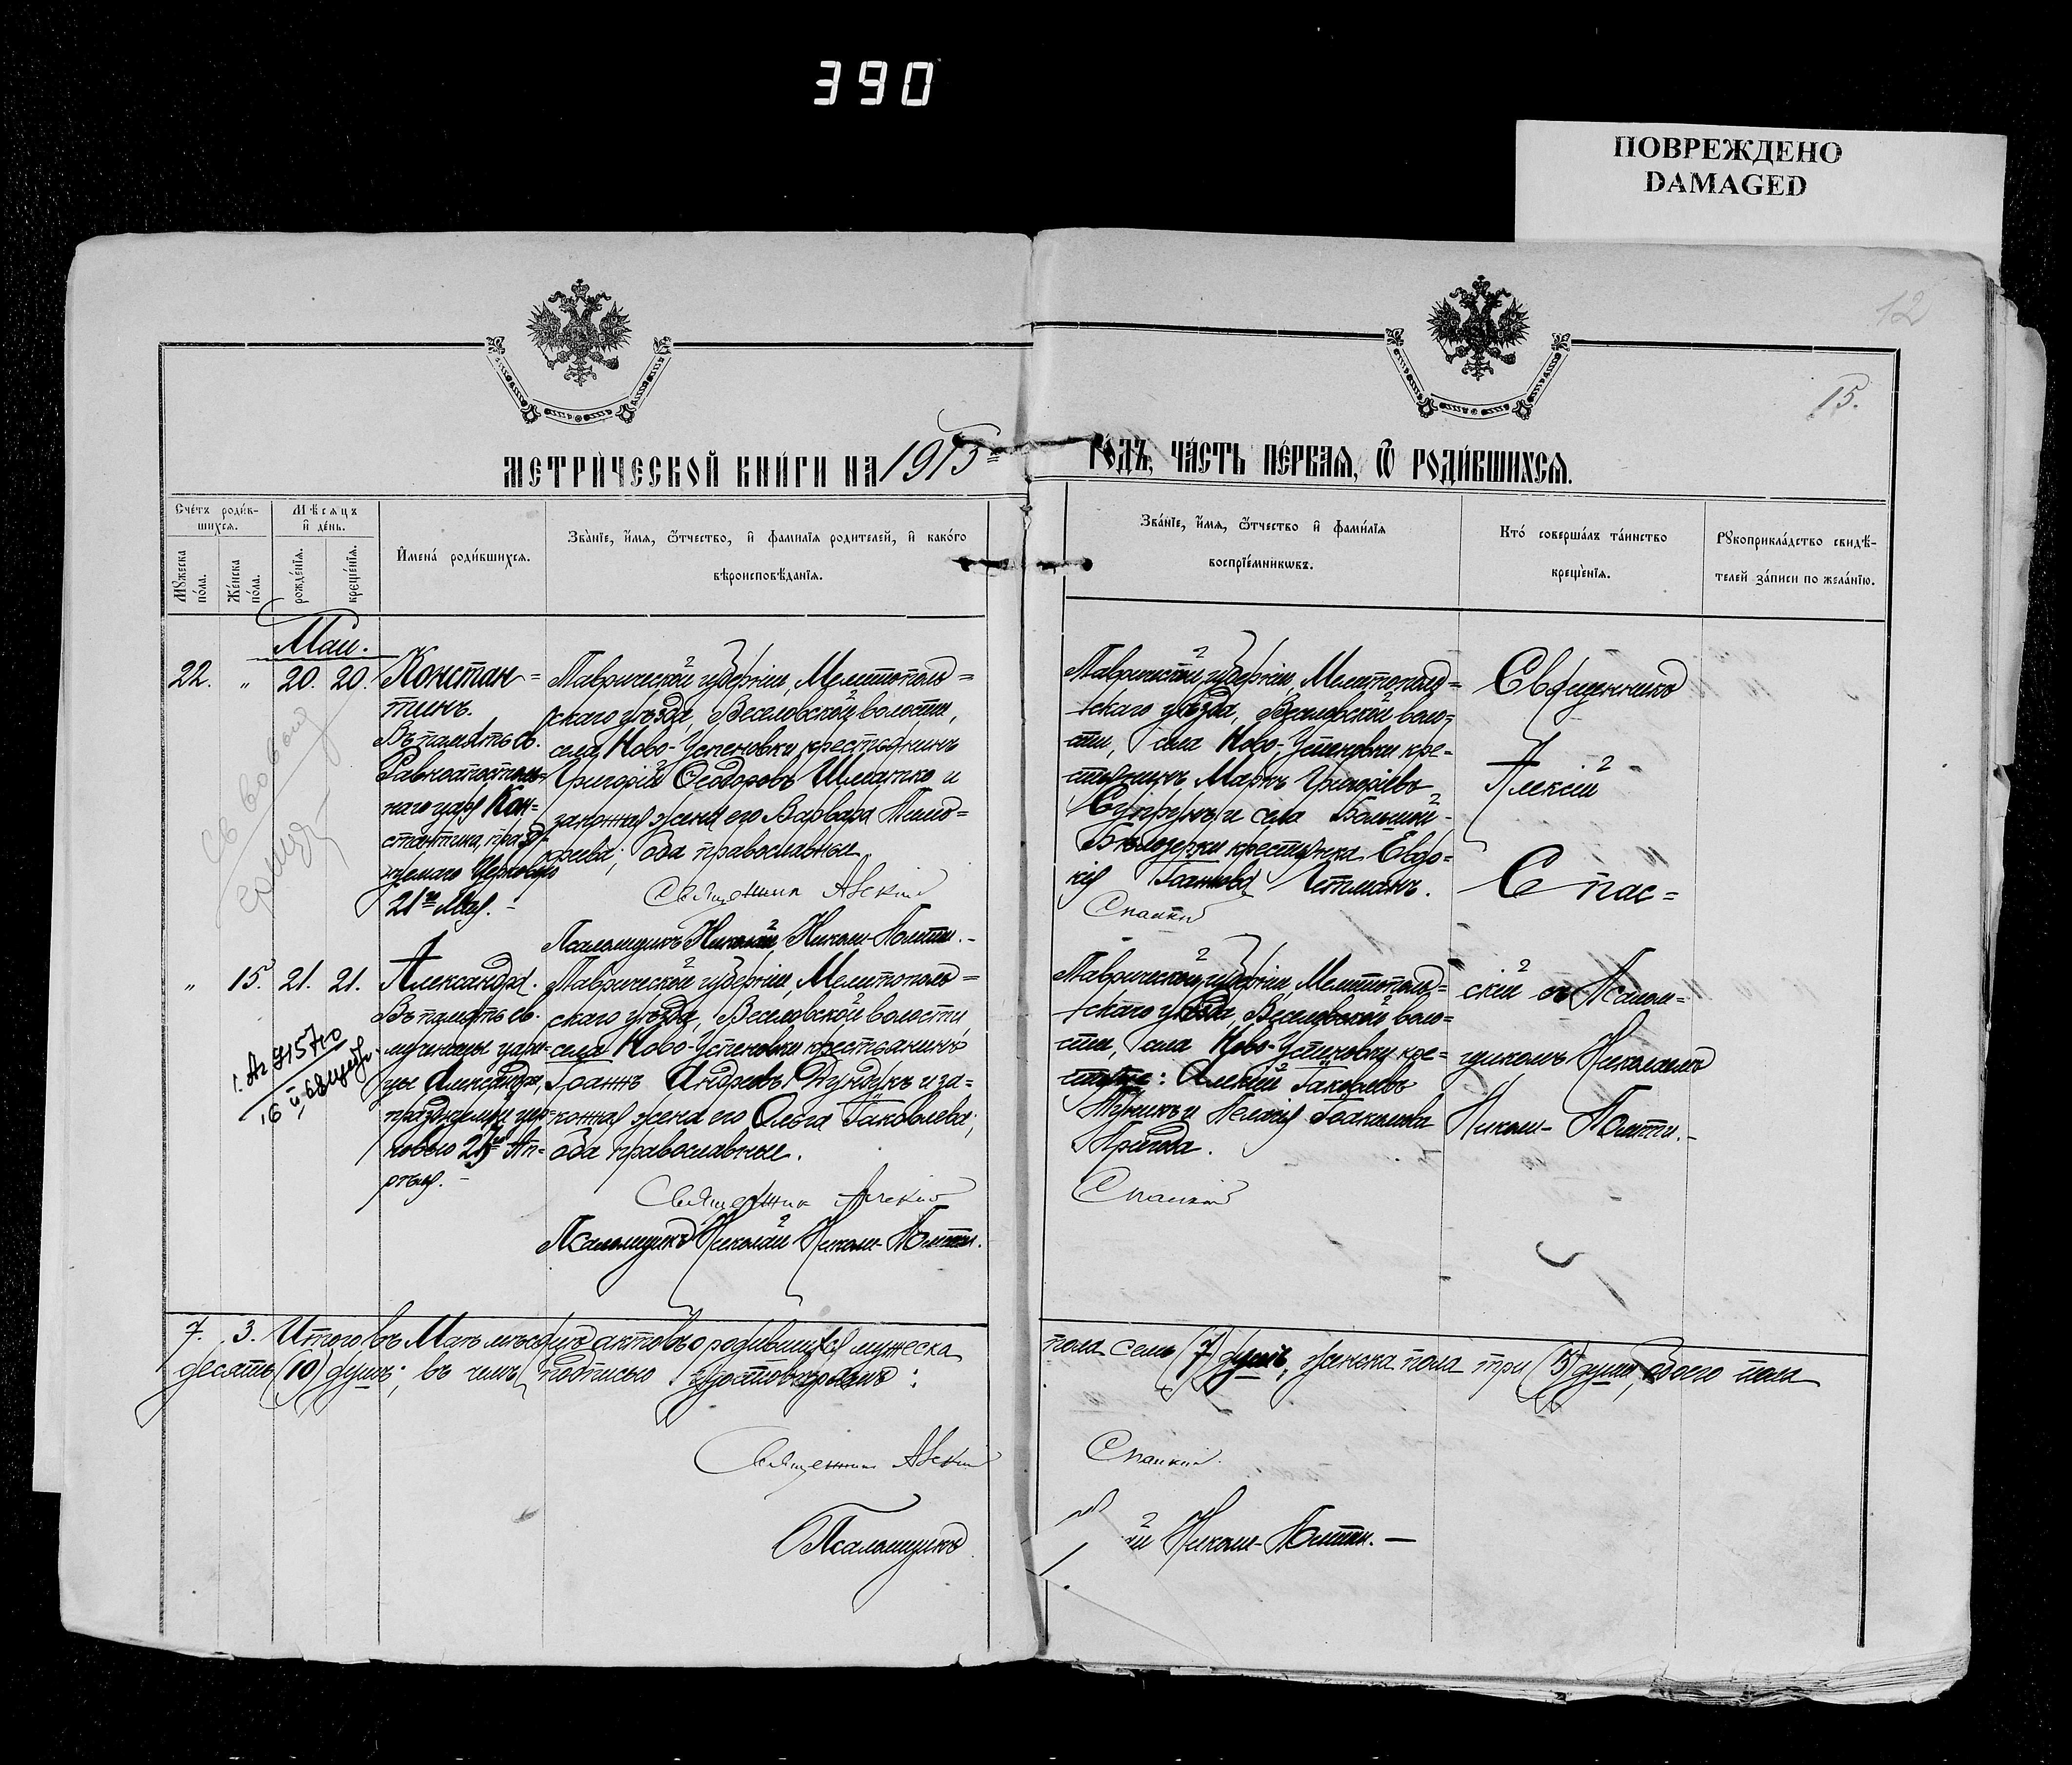 390
ПОВРЕЖДЕНО
DAMAGED
12
15.
МЕТРИ́ЧЕСКОЙ КНИ́ГИ НА 1915 ГО́ДЪ, ЧА́СТЬ ПЕ́РВАЯ, Ѿ РОДИ́ВШИХСЯ.
Сче́тъ роди́в-
шихся.
Мѣсяцъ
и́ де́нь.
Му́жеска
по́ла.
Же́нска
по́ла.
рожде́нїя.
креще́нїя.
И́мена́ роди́вшихся.
Зва́нїе, и́мя, ѻ́тчество, и́ фами́лїя роди́телей, и́ како́го
вѣроисповѣ́данїя.
Зва́нїе, и́мя, ѻ́тчество и́ фами́лїя
воспрїе́мникѡвъ.
Кто́ соверша́лъ та́инство
креще́нїя.
Рꙋкоприкла́дство свидѣ́-
телей за́писи по жела́нїю.
Май.
22. „ 20. 20.
Констан=
тинъ.
Въ память св.
Равноапостоль=
наго царя Кон=
стантина, празд=
нуемаго Церковью
21го Мая. -
Таврической губерніи, Мелитополь=
скаго уѣзда, Веселовской волости,
села Ново-Успеновки крестьянинъ
Григорій Ѳеодоровъ Шматко и
законная жена его Варвара Тимо=
ѳеева; оба православные.
Священник Алексій
Псаломщикъ Николай Николи-
Таврической губерніи, Мелитополь=
скаго уѣзда, Веселовской воло=
сти, села Ново-Успеновки кре=
стьянинъ Маркъ Григоріевъ
Супрунъ и села Большой-
Бѣлозерки крестьянка Евдо=
кія Іоаннова
Спасскій
Священникъ
Алексій
Спас=
скій съ Псалом=
щикомъ Николаемъ
Николи-
„ 15. 21. 21.
Александра.
Въ память св.
мученицы цари=
цы Александры,
празднуемой цер=
ковью 23го Ап=
рѣля. -
Таврической губерніи, Мелитополь=
скаго уѣзда, Веселовской волости,
села Ново-Успеновки крестьянинъ
Іоаннъ Андреевъ Дундукъ и за=
конная жена его Ольга Іаковлева;
оба православные.
Священник Алексій
Псаломщикъ Николай Николи-
Таврической губерніи, Мелитополь=
скаго уѣзда, Веселовской воло=
сти, села Ново-Успеновки кре=
стьяне: Алексій Іаковлевъ
и Пелагія
Спасскій
7. 3. Итого въ Маѣ мѣсяцѣ актовъ о родившихся мужеска
пола семь (7) душъ, женска пола три (3) души, обоего пола
десять (10) душъ; въ чемъ подписью удостовѣряемъ:
Священник Алексій
Спасскій.
Псаломщикъ
й Николи-